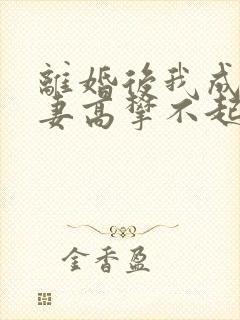 離婚後我成
妻高攀不起
金香盈